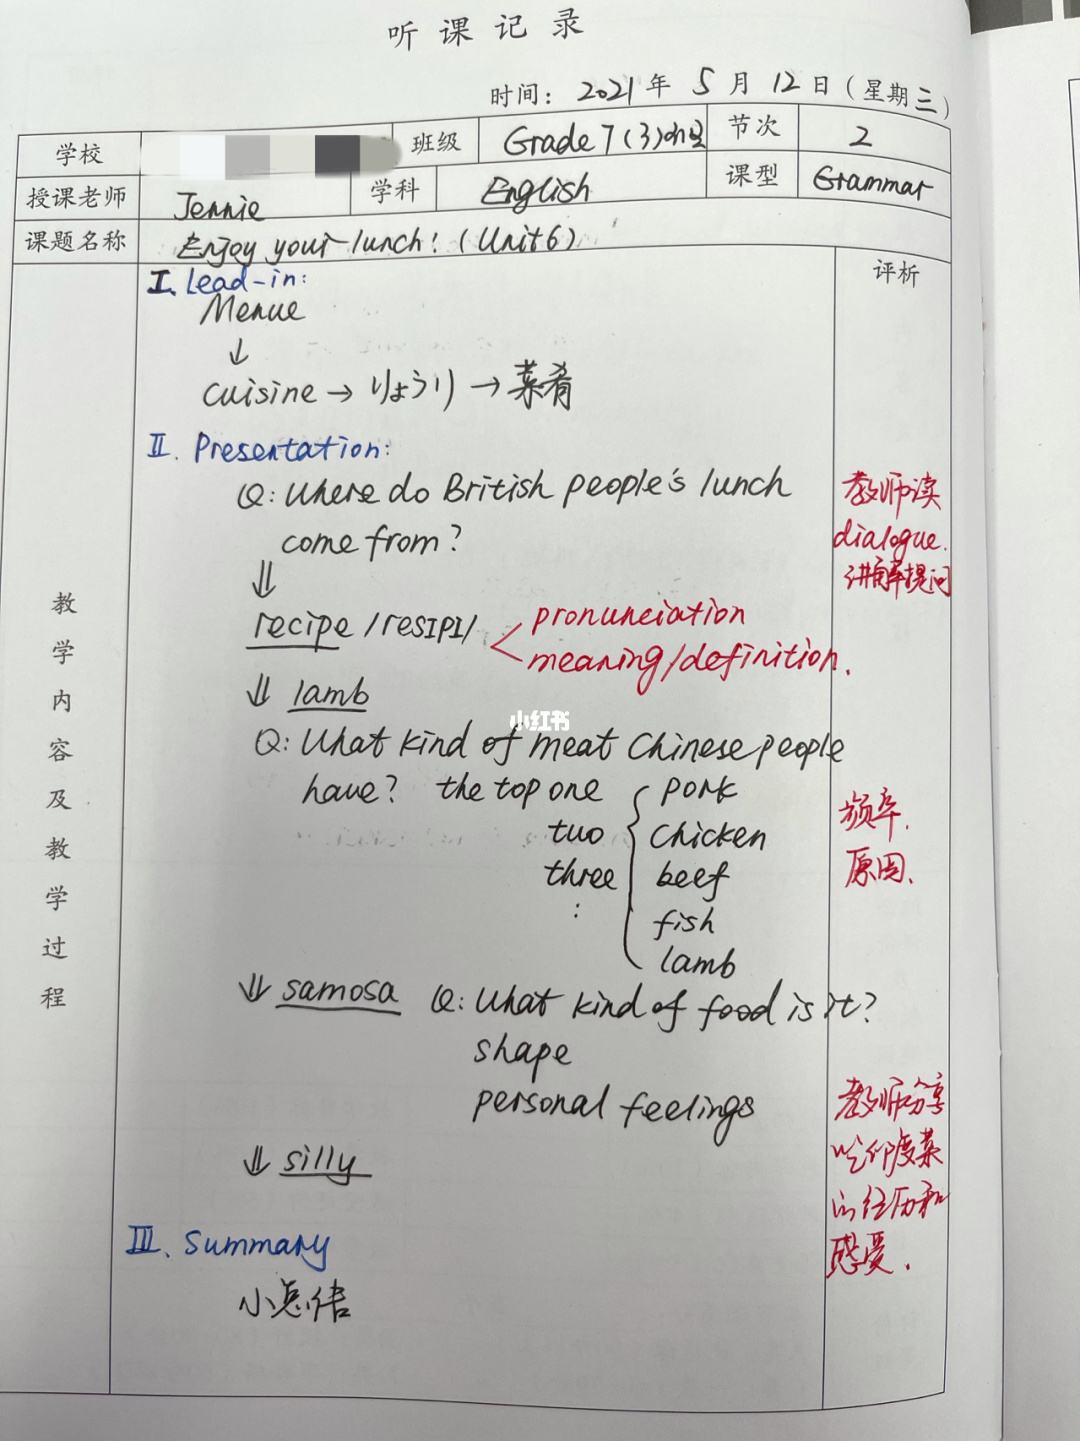 听课记录
时间: 2021年 5月 12日 (星期三)
学校 班级 Grade 7 (3) 节次 2
授课老师 Jennie 学科 English 课型 Grammar
课题名称 Enjoy your lunch! (Unit 6)
评析
I. Lead-in:
Menue
↓
cuisine → りょうり → 菜肴
II. Presentation:
Q: Where do British people's lunch
come from?
教师读
dialogue.
讲解提问
⇓
recipe /resIPI/ < pronunciation
meaning/definition.
⇓ lamb
小红书
Q: What kind of meat Chinese people
have? the top one { pork
two chicken
three beef
: fish
lamb
频率.
原因.
⇓ samosa Q: What kind of food is it?
shape
personal feelings
教师分享
吃印度菜
的经历和
感受.
⇓ silly
III. Summary
小总结
教学内容及教学过程